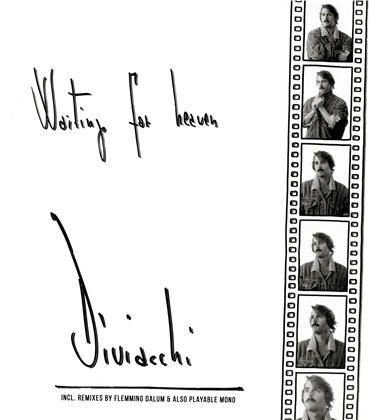 Waiting for heaven
Dividechi
INCL. REMIXES BY FLEMMING DALUM & ALSO PLAYABLE MONO